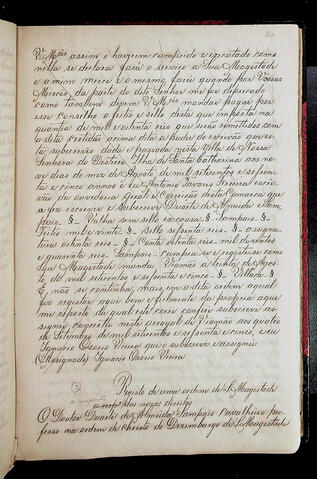 V.ᵃˢ Mᶜᵉˢ assim o hajão cumprido e executado como
nesta se declara farà o serviço a Sua Magestade
e a mim mercê e o mesmo farei quando por Vossas
Mercês da parte do dito Senhor me for deprecado
como tambem dizem V.ᵃˢ Mᶜᵉˢ mandar pagar por
esse conselho o feitio e sello desta que importa na
quantia de mil oitenta reis que serão remettidos com
a dita certidão acima dita a poder do escrivão que es-
ta subscreveo dada e passada nesta Villa de Nossa
Senhora do Desterro Ilha de Santa Catharina aos no-
ve dias do mez de Agosto de mil setecentos e sessen-
ta e cinco annos e eu Antonio Tavares Ferreira escri-
vão da ouvidoria geral e correição desta Comarca que
a fez escrever e subscrevi Duarte de Almeida Sam
paio — § — Valha sem sello ex causa — § — Sampaio — § —
Feitio mil e vinte — § — sello sessenta reis — § — assigna-
tura oitenta reis — § — Conta oitenta reis — mil duzentos
e quarenta reis — Sampaio — cumpra-se e registe-se como
Sua Magestade manda. Viamão a trinta de Agos-
to de mil setecentos e sessenta e cinco — § — Villara — § —
E não se continha mais em a dita ordem a qual
fiz registar aqui bem e fielmente da propria a que
me reporto da qual este caso conferi subscrevi e as-
signei concertei neste arraial de Viamão aos quatro
de Setembro de mil setecentos e sessenta e cinco, e eu
Ignacio Osorio Vieira que o subscrevi e assignei
(Assignado) Ignacio Osorio Vieira
Registo de uma ordem de S. Magestade
a respeito dos novos direitos
O Doutor Duarte de Almeida Sampaio cavalheiro pro-
fesso na ordem de christo do Dezembargo de S. Magestade